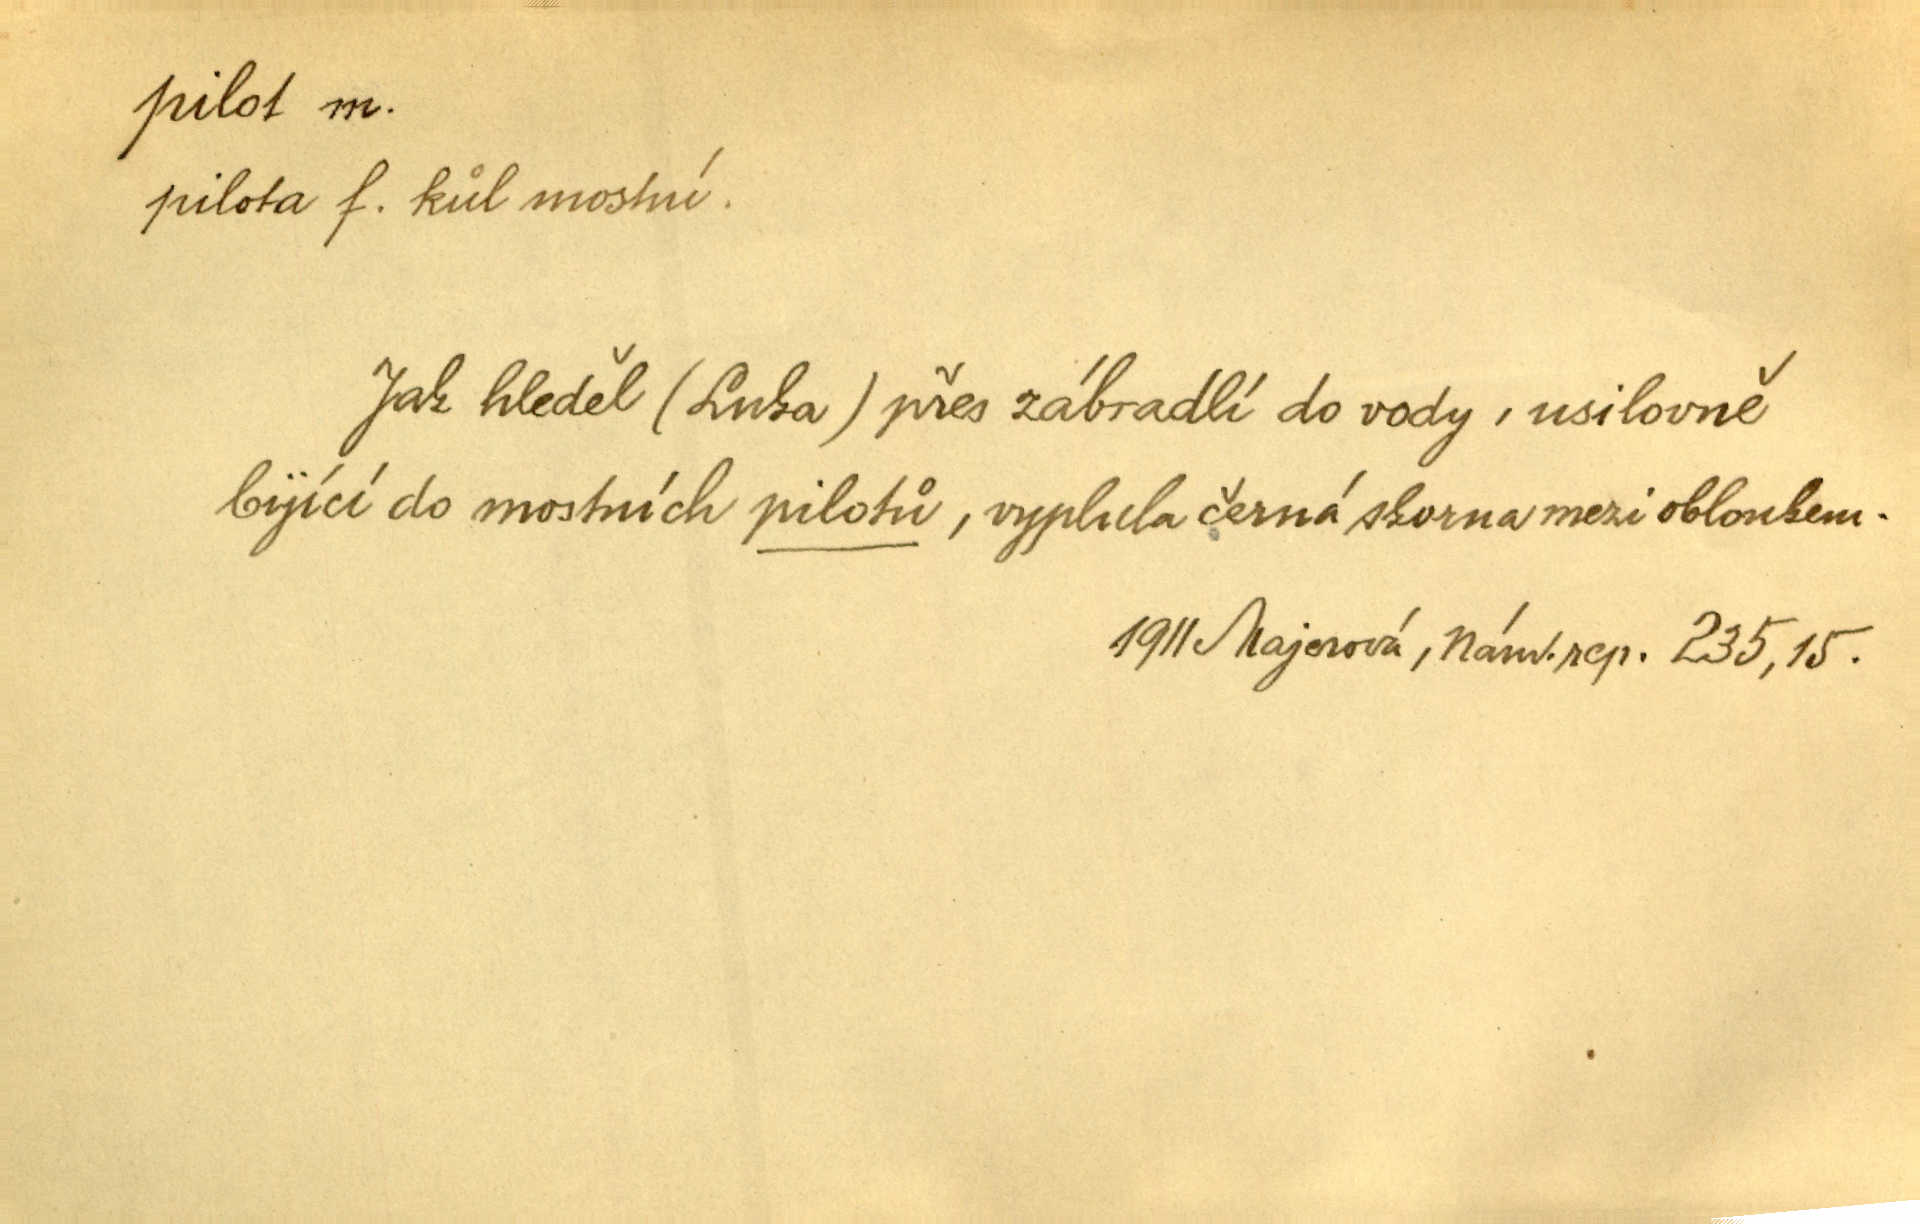 pilot m.
pilota f. kůl mostní.
Jak hleděl (Luka) přes zábradlí do vody, usilovně
bijící do mostních pilotů, vyplula černá skorna mezi obloukem.
1911 Majerová, Nám. rep. 235,15.